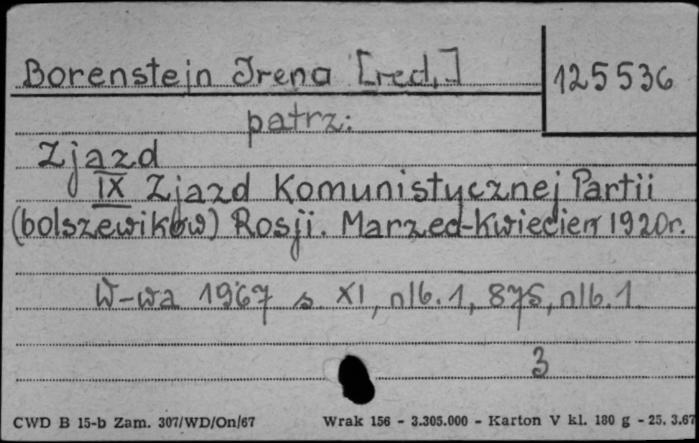 Borenstejn Irena [red.]
125536
patrz:
Zjazd
IX Zjazd Komunistycznej Partii
(bolszewików) Rosji. Marzec-Kwiecień 1920r.
W-wa 1967 s. XI, nlb. 1, 875, nlb. 1
3
CWD B 15-b Zam. 307/WD/On/67 Wrak 156 - 3.305.000 - Karton V kl. 180 g - 25. 3.67